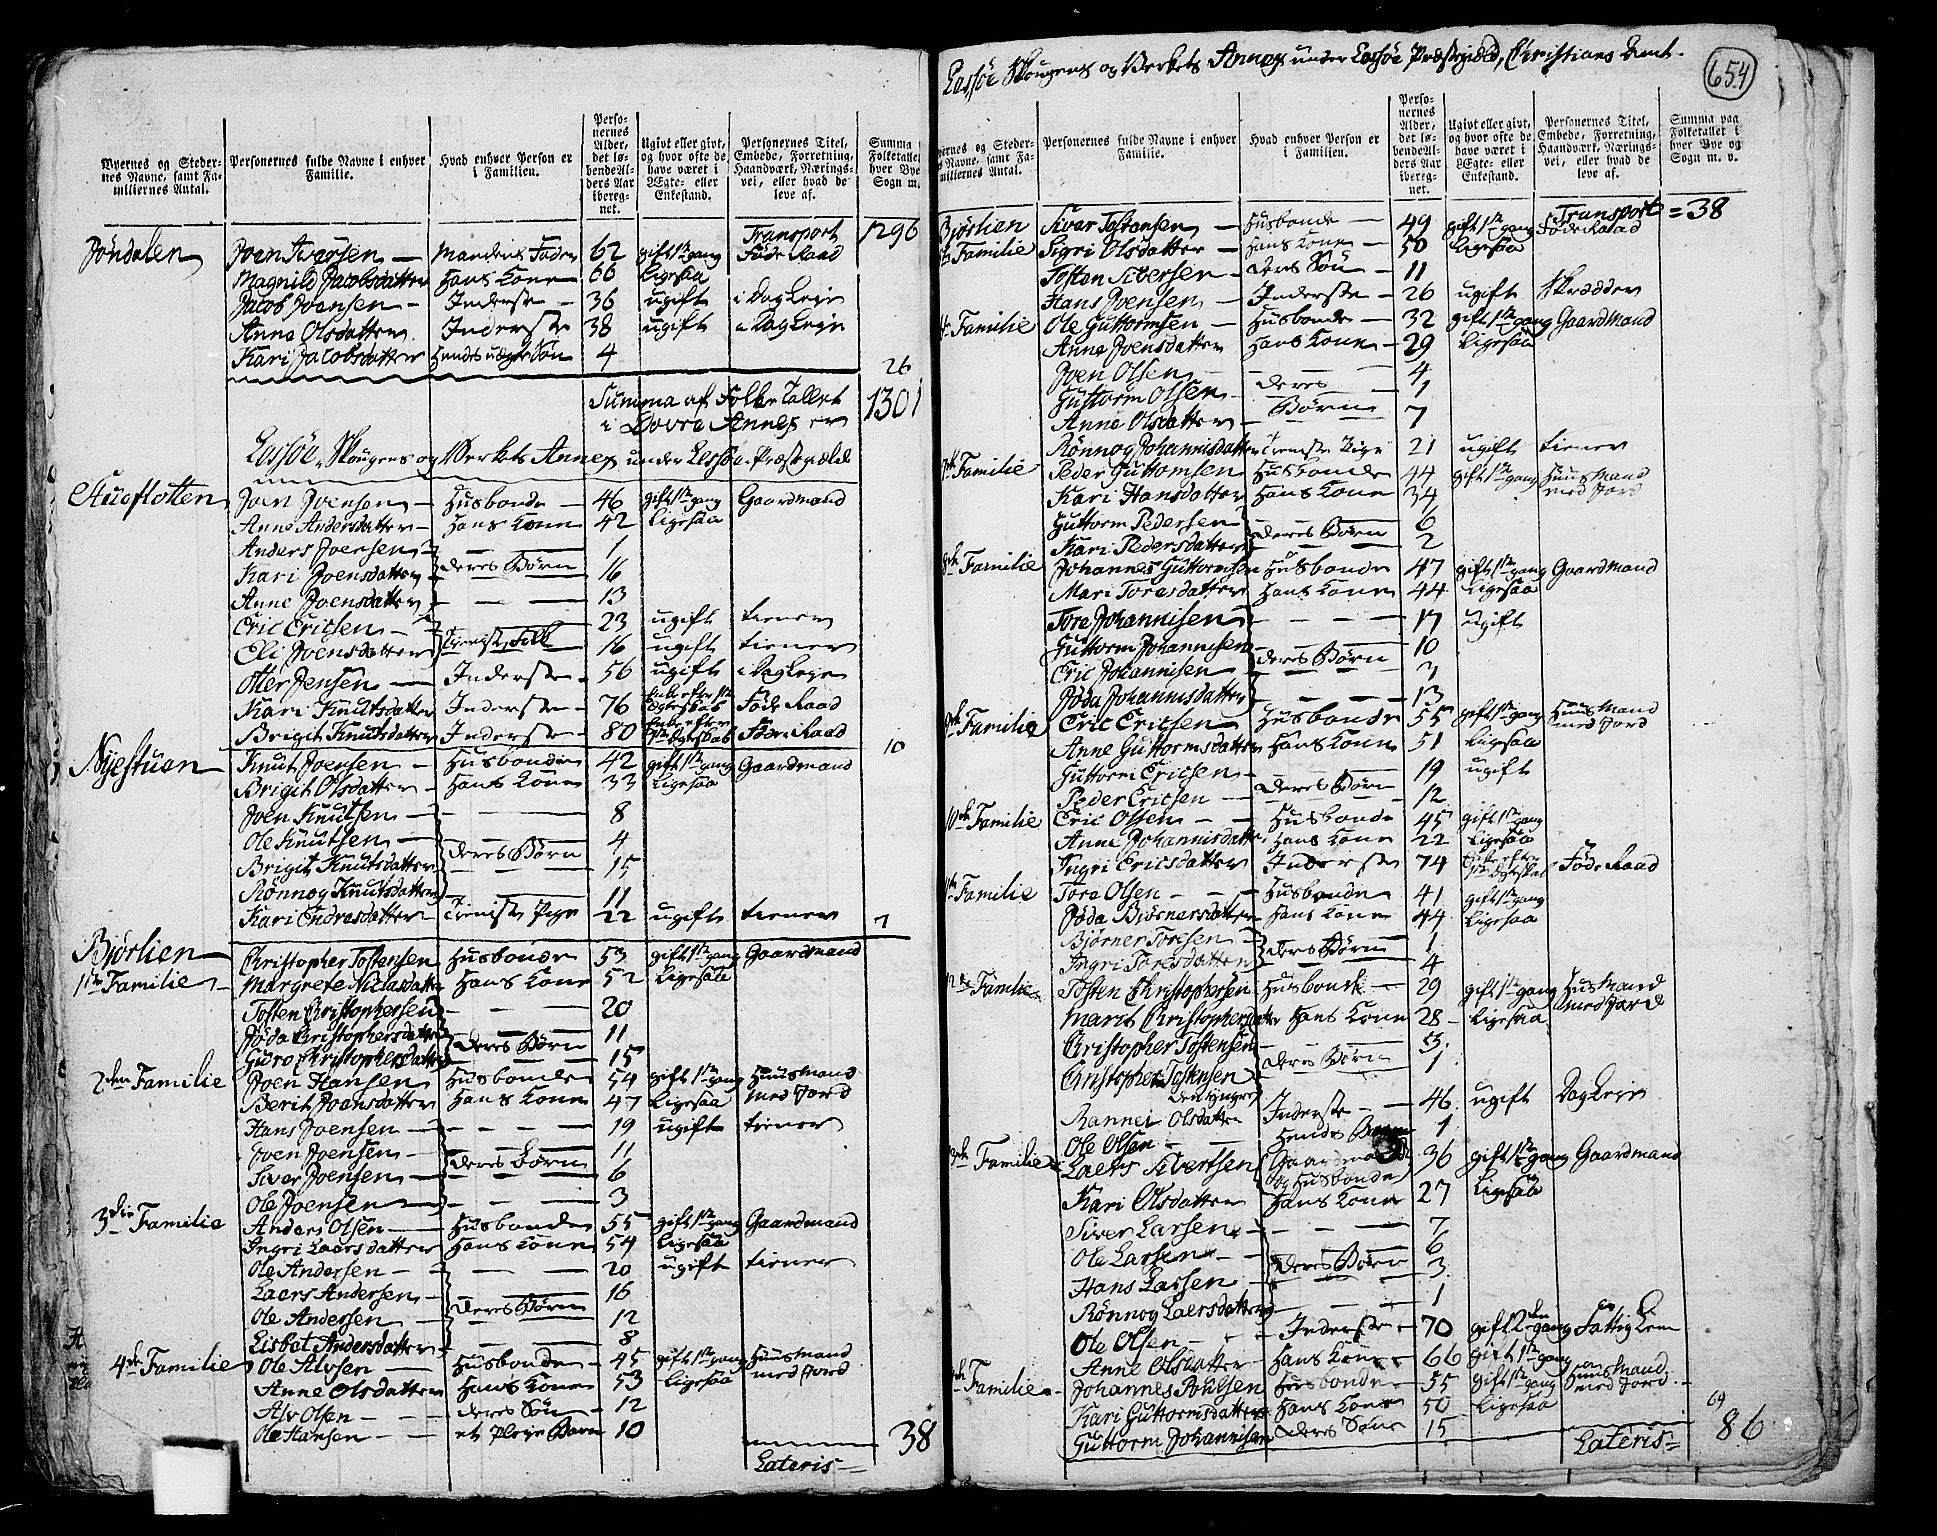 Byernes og Stedernes Navne, samt Familiernes Antal.
Personernes fulde Navne i enhver Familie.
Hvad enhver Person er i Familien.
Personernes Alder, det løbende Alders Aar iberegnet.
Ugivt eller givt, og hvor ofte de have været i Ægte- eller Enkestand.
Personernes Titel, Embede, Forretning, Haandværk, Næringsvei, eller hvad de leve af.
Summa Folketallet hver Bye Sogn m.
Transport 1296
Jøndalen Joen Iversen — Mandens Fader 62 gift 1ste gang Føde Raad
Magnild Jacobsdatter Hans Kone 66 Ligesaa
Jacob Joensen — Inderste — 36 ugift i Dag Leje
Anne Olsdatter Inderste 38 ugift i Dag Leje
Kari Jacobsdatter Hendes uægte Søn 4
26
Summa af Folke Tallet 1301
i Dovre Annex er
Lessøe Skougens og Verkets Annex under Lessøe Præstegield
Auoflotten Joen Joensen — Husbonde — 46 gift 1ste gang Gaardmand
Anne Andersdatter — Hans Kone 42 Ligesaa
Anders Joensen — 1
Kari Joensdatter deres Børn 16
Anne Joensdatter — 13
Eric Ericsen — 23 ugift tiener
Eli Joensdatter Tieniste Folk 16 ugift tiener
Otter Jensen — Inderste — 56 ugift i Dag Leje
Kari Knutsdatter Inderste — 76 Enke efter 1ste Ægteskab Føde Raad
Brigit Knutsdatter Inderste — 80 Enke efter 1ste Ægteskab Føde Raad 10
Nyestuen Knut Joensen — Husbonde 42 gift 1ste gang Gaardmand
Brigit Olsdatter — Hans Kone 33 Ligesaa
Joen Knutsen — 8
Ole Knutsen — 4
Brigit Knutsdatter deres Børn 15
Rønnog Knutsdatter 11
Kari Endresdatter Tieniste Pige 22 ugift tiener 7
Bjørlien Christopher Tostensen Husbonde 53 gift 1ste gang Gaardmand
1ste Familie Margrete Niclasdatter Hans Kone 52 Ligesaa
Tosten Christophersen — 20
Jøda Christophersdatter 11
Guro Christophersdatter deres Børn 15
2den Familie Joen Hansen Husbonde 54 gift 1ste gang Huusmand
Berit Joensdatter Hans Kone 47 Ligesaa med Jord
Hans Joensen — 19 ugift tiener
Joen Joensen — 11
Siver Joensen — deres Børn 6
Ole Joensen — 3
3die Familie Anders Olsen — Husbonde 55 gift 1ste gang Gaardmand
Ingri Laersdatter Hans Kone 54 Ligesaa
Ole Andersen — 20 ugift tiener
Laers Andersen — 16
Ole Andersen — deres Børn 12
Lisbet Andersdatter — 8
4de Familie Ole Alvsen Husbonde — 45 gift 1ste gang Huusmand
Anne Olsdatter Hans Kone 53 Ligesaa med Jord
Alv Olsen — deres Søn — 12
Ole Hansen — et Pleje Barn 10
Lateris — 38
Lessøe Skougens og Verkets Annex under Lessøe Præstegield, Christians Amt.
654
Byernes og Stedernes Navne, samt Familiernes Antal.
Personernes fulde Navne i enhver Familie.
Hvad enhver Person er i Familien.
Personernes Alder, det løbende Alders Aar iberegnet.
Ugivt eller givt, og hvor ofte de have været i Ægte- eller Enkestand.
Personernes Titel, Embede, Forretning, Haandværk, Næringsvei, eller hvad de leve af.
Summa paa Folketallet i hver Bye og Sogn m. v.
Transport = 38
Bjørlien Siver Tostensen — Husbonde — 49 gift 1ste gang Føde Raad
Familie Sigri Olsdatter — Hans Kone — 50 Ligesaa
Tosten Siversen — deres Søn — 11
Hans Joensen — Inderste — 26 ugift Skrædder
Familie Ole Guttormsen — Husbonde — 32 gift 1ste gang Gaardmand
Anne Joensdatter Hans Kone — 29 Ligesaa
Joen Olsen — 4
Guttorm Olsen — deres 1
Anne Olsdatter Børn 7
Rønnog Johannisdatter Tieniste Pige 21 ugift tiener
7de Familie Peder Guttomsen Husbonde 44 gift 1ste gang Huusmand
Kari Hansdatter Hans Kone 34 med Jord
Guttorm Pedersen 6
Kari Pedersdatter deres Børn 2
Familie Johannes Guttormsen Husbonde 47 gift 1ste gang Gaardmand
Mari Toresdatter Hans Kone 44 Ligesaa
Tore Johannisen — 17 ugift
Guttorm Johannisen 10
Eric Johannisen deres Børn 3
Jøda Johannisdatter — 13
9de Familie Eric Ericsen — Husbonde 55 gift 1ste gang Huusmand
Anne Guttormsdatter Hans Kone 51 Ligesaa med Jord
Guttorm Ericsen — 19 ugift
Peder Ericsen — deres Børn 12
10de Familie Eric Olsen — Husbonde 45 gift 1ste gang
Anne Johannisdatter Hans Kone 22 Ligesaa
Ingri Ericsdatter Inderste 74 Enke efter 1ste Ægteskab Føde Raad
Familie Tore Olsen — Husbonde 41 gift 1ste gang
Jøda Bjørnersdatter Hans Kone 44 Ligesaa
Bjørner Toresen — 1
Ingri Toresdatter deres Børn 4
12te Familie Tosten Christophersen Husbonde — 29 gift 1ste gang Huusmand
Marit Christophersdatter Hans Kone 28 — Ligesaa med Jord
Christopher Tostensen 3
Christopher Tostensen deres Børn 1
den yngre
Rannei Olsdatter Inderste — 46 ugift Dag Leje
Ole Olsen — Hendes Barn 1
Familie Laers Sivertsen Gaardmand 36 gift 1ste gang Gaardmand
og Husbonde
Kari Olsdatter Hans Kone 27 Ligesaa
Siver Larsen — 7
Ole Larsen — 6
Hans Larsen — deres Børn 3
Rønnog Laersdatter — 1
Ole Olsen — Inderste — 70 gift 2den gang Fattig Lem
Anne Olsdatter — Hans Kone — 66 gift 1ste gang
Familie Johannes Poulsen Husbonde — 55 gift 1ste gang Huusmand med Jord
Kari Guttormsdatter Hans Kone 50 Ligesaa
Guttorm Johannisen deres Søn 15
Lateris = 86